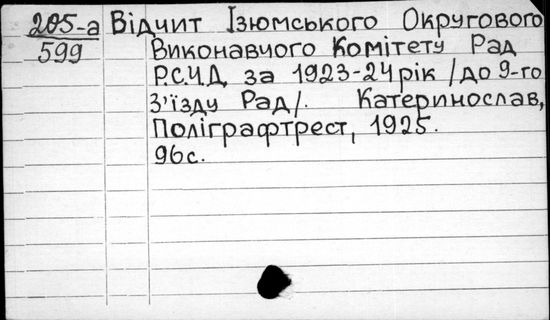 205-а Відчит Ізюмського Округового
599 Виконавчого Комітету Рад
Р.С.Ч.Д. за 1923-24 рік /до 9-го
З'їзду Рад/. Катеринослав,
Поліграфтрест, 1925.
96с.